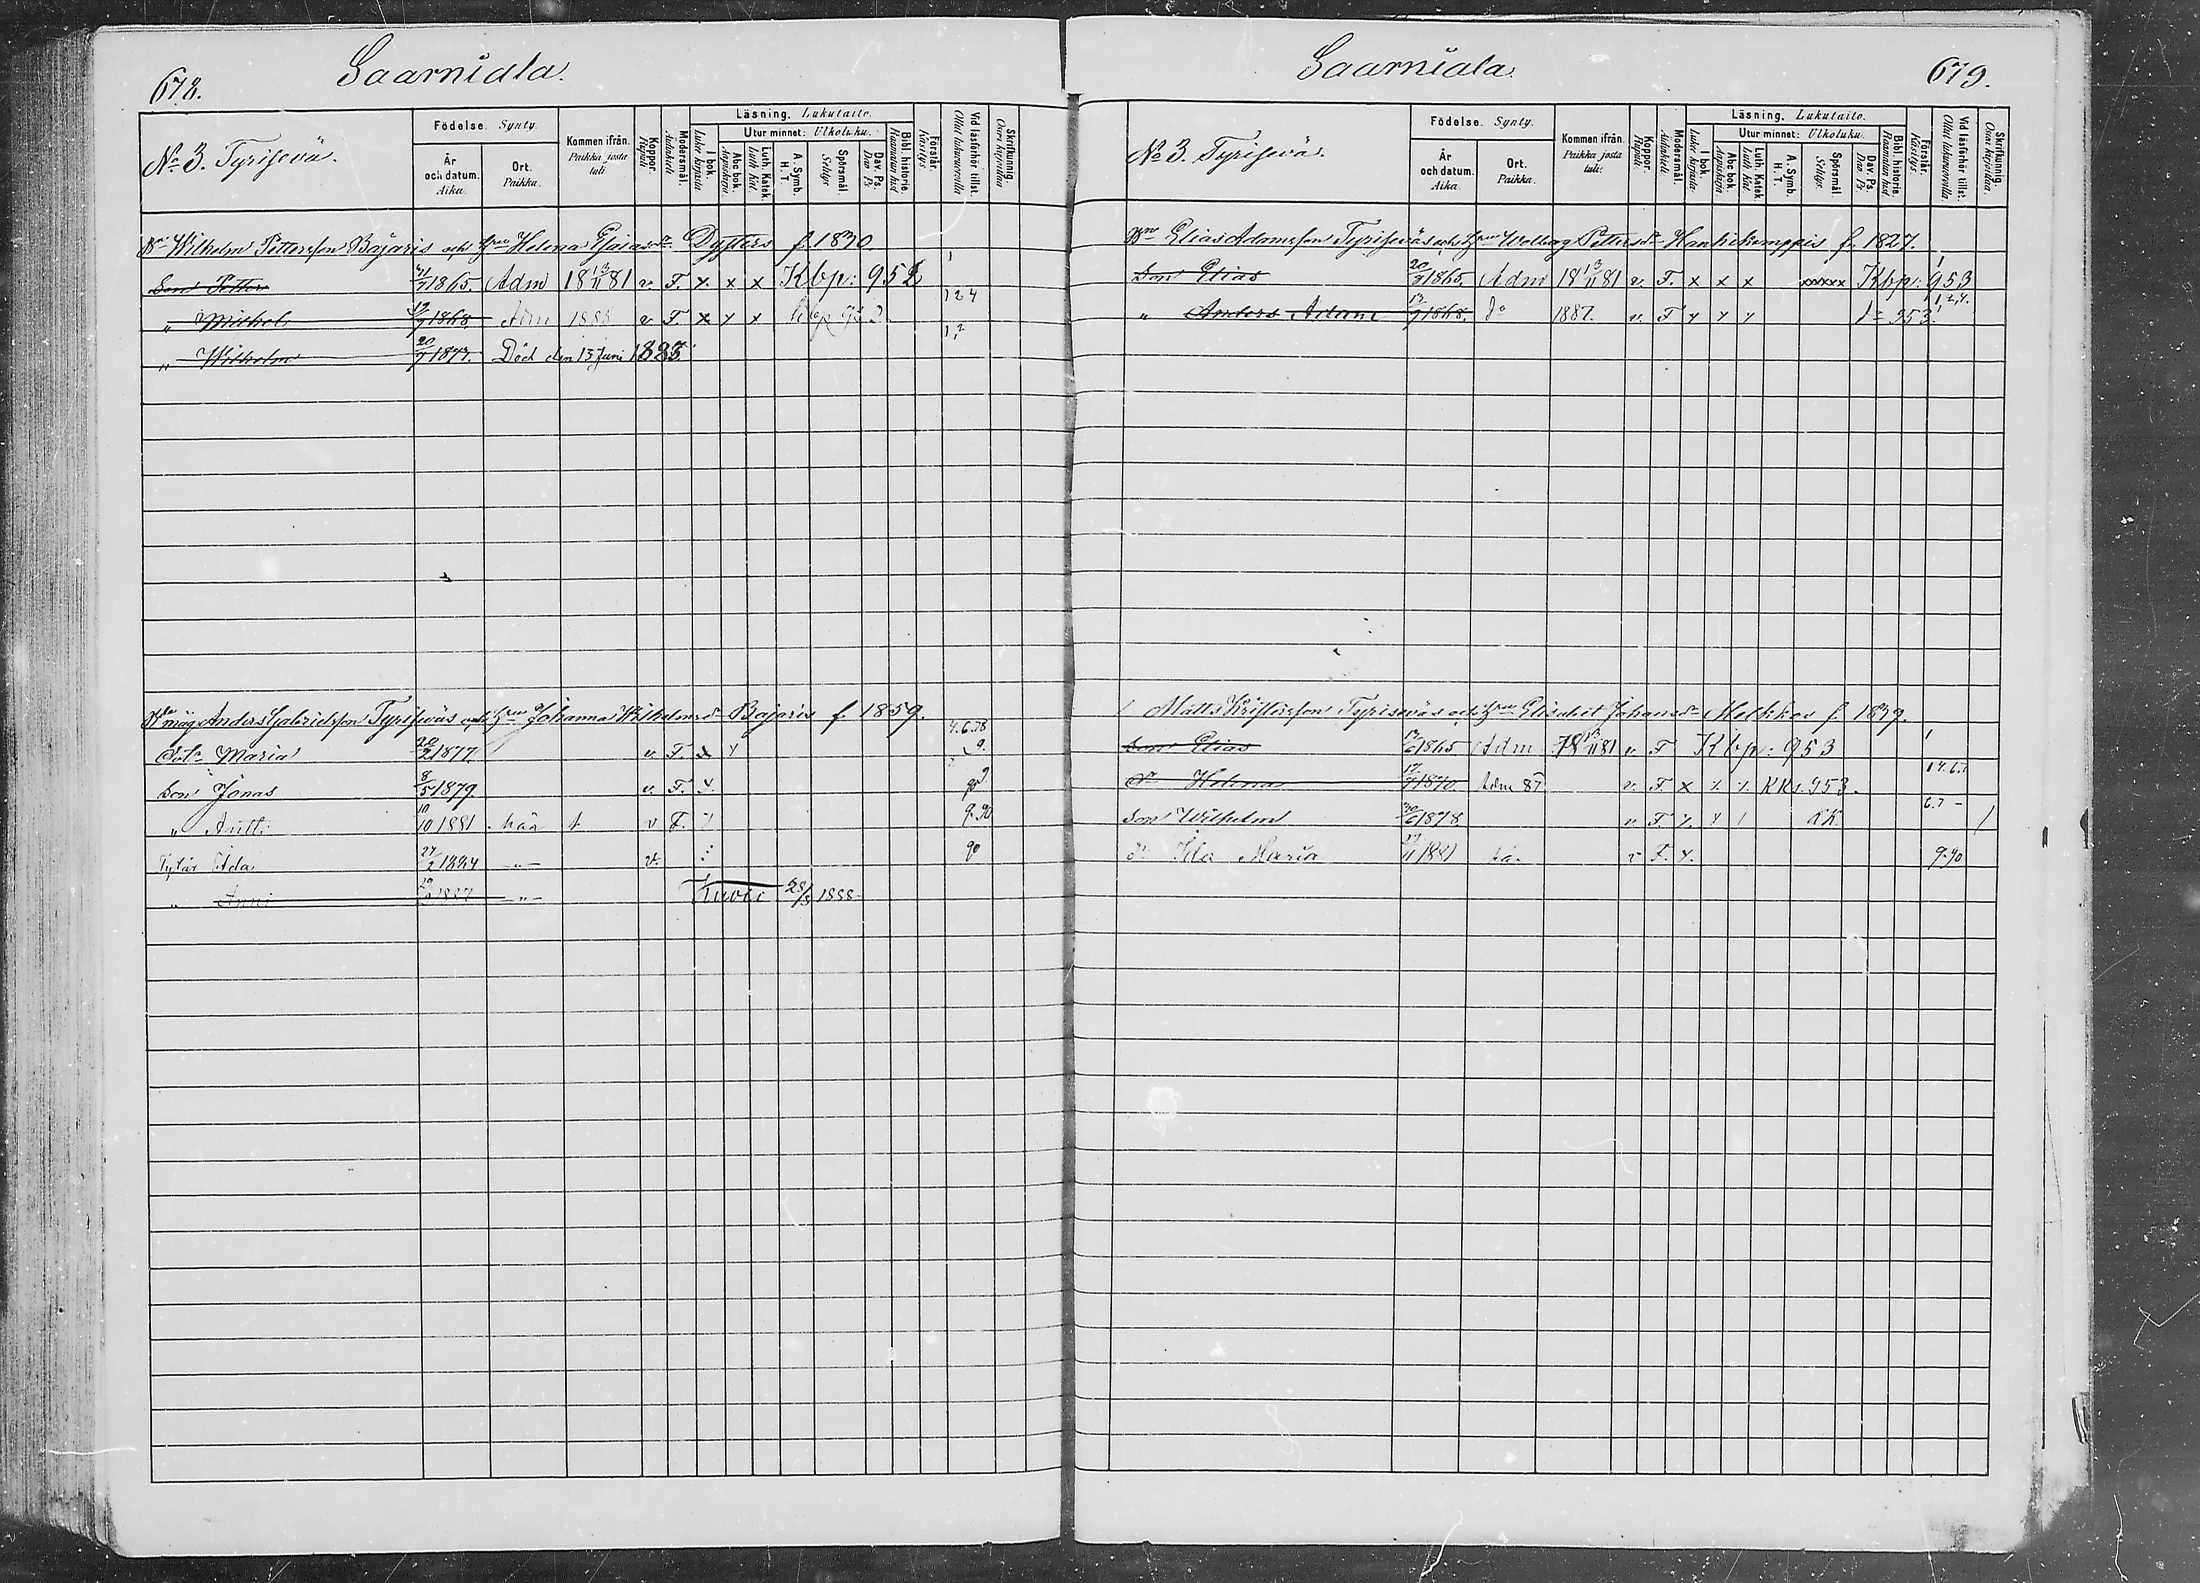 678.
Saarniala.
No 3. Tyrisevä.
Födelse. Synty.
År och datum. Aika.
Ort. Paikka.
Kommen ifrån. Paikka josta tuli
Koppor. Rupuli
Modersmål. Äidinkieli
Läsning. Lukutaito.
I bok. Lukee kirjasta
Utur minnet: Ulkoluku.
Abc bok. Aapiskirja
Luth. Katek. Luth. kat.
A. Symb. H. T.
Spörsmål. Selitys
Dav. Ps. Dav. Ps.
Bibl. historie. Raamatun hist.
Förstår. Käsitys.
Vid läsförhör tillst. Ollut lukuvuorolla
Skrifkunnig. Osaa kirjoittaa
Wilhelm Pettersson Bajaris och Helena Dyfters f. 1830.
Son Petter 1865. Adm 18 13/11 81 v. F. x x x Kbp: 952
" Michel 1868 Adm 1888 v. F. x x x
1 2 4
" Wilhelm 20/7 1873. Död den 13 Juni 1883
1,2
måg Anders Gabrielsson Tyrisevä och Johanna Wilhelmsdr Bajaris f. 1859.
4.6.78
Maria 20/2 1877. v. F. x x 9.
Son Jonas 8/5 1879 v. F. x
" Antti 10/10 1881 v F. 9.90
Tytär Ida 27/2 1884 " v. 90
" Anni 1887 " Kuoli 28/3 1888
679.
Saarniala.
No 3. Tyrisevä.
Födelse. Synty.
År och datum. Aika.
Ort. Paikka.
Kommen ifrån. Paikka josta tuli:
Koppor. Rupuli
Modersmål. Äidinkieli
Läsning. Lukutaito.
I bok. Lukee kirjasta
Utur minnet: Ulkoluku.
Abc bok. Aapiskirja
Luth. Katek. Luth. kat.
A. Symb. H. T.
Spörsmål. Selitys
Dav. Ps. Dav. Ps.
Bibl. historie. Raamatun hist.
Förstår. Käsitys.
Vid läsförhör tillst. Ollut lukuvuorolla
Skrifkunnig. Osaa kirjoittaa.
Elias Adamsson Tyrisevä och Walbog Pettersdr Hanhikemppis f. 1827.
Son Elias 20/7 1865. Adm 18 13/11 81 v. F. x x x xxxxx Kbp: 953
" Anders Adam 1868. do 1887. v. F x x x do 953.
1,2,4.
Matts Kristersson Tyrisevä och Elisabet Johansdr Melkkos f. 1839.
Son Elias 13/6 1865 Adm 18 13/11 81 v F Kbp: 953
Helena 1870. Adm 87 v. F x x x KKs. 953.
Son Wilhelm 1878 v F x. x KK. 6.7 -
Ida Maria 1881 v F. x. 9.90